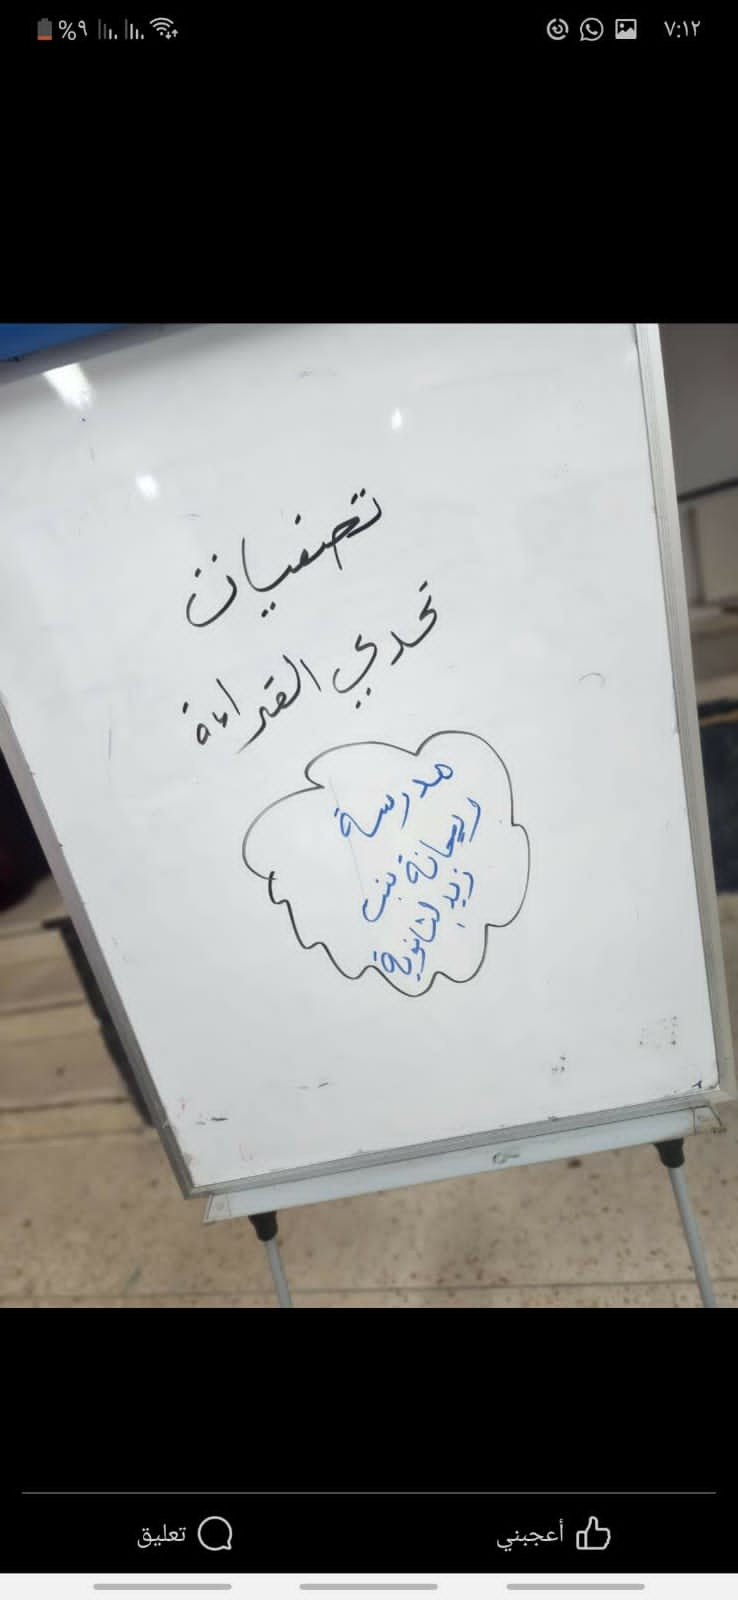 ٧:١٢
%٩
تصفيات
تحدي القراءة
مدرسة
ريحانة بنت
زيد الثانوية
أعجبني
تعليق